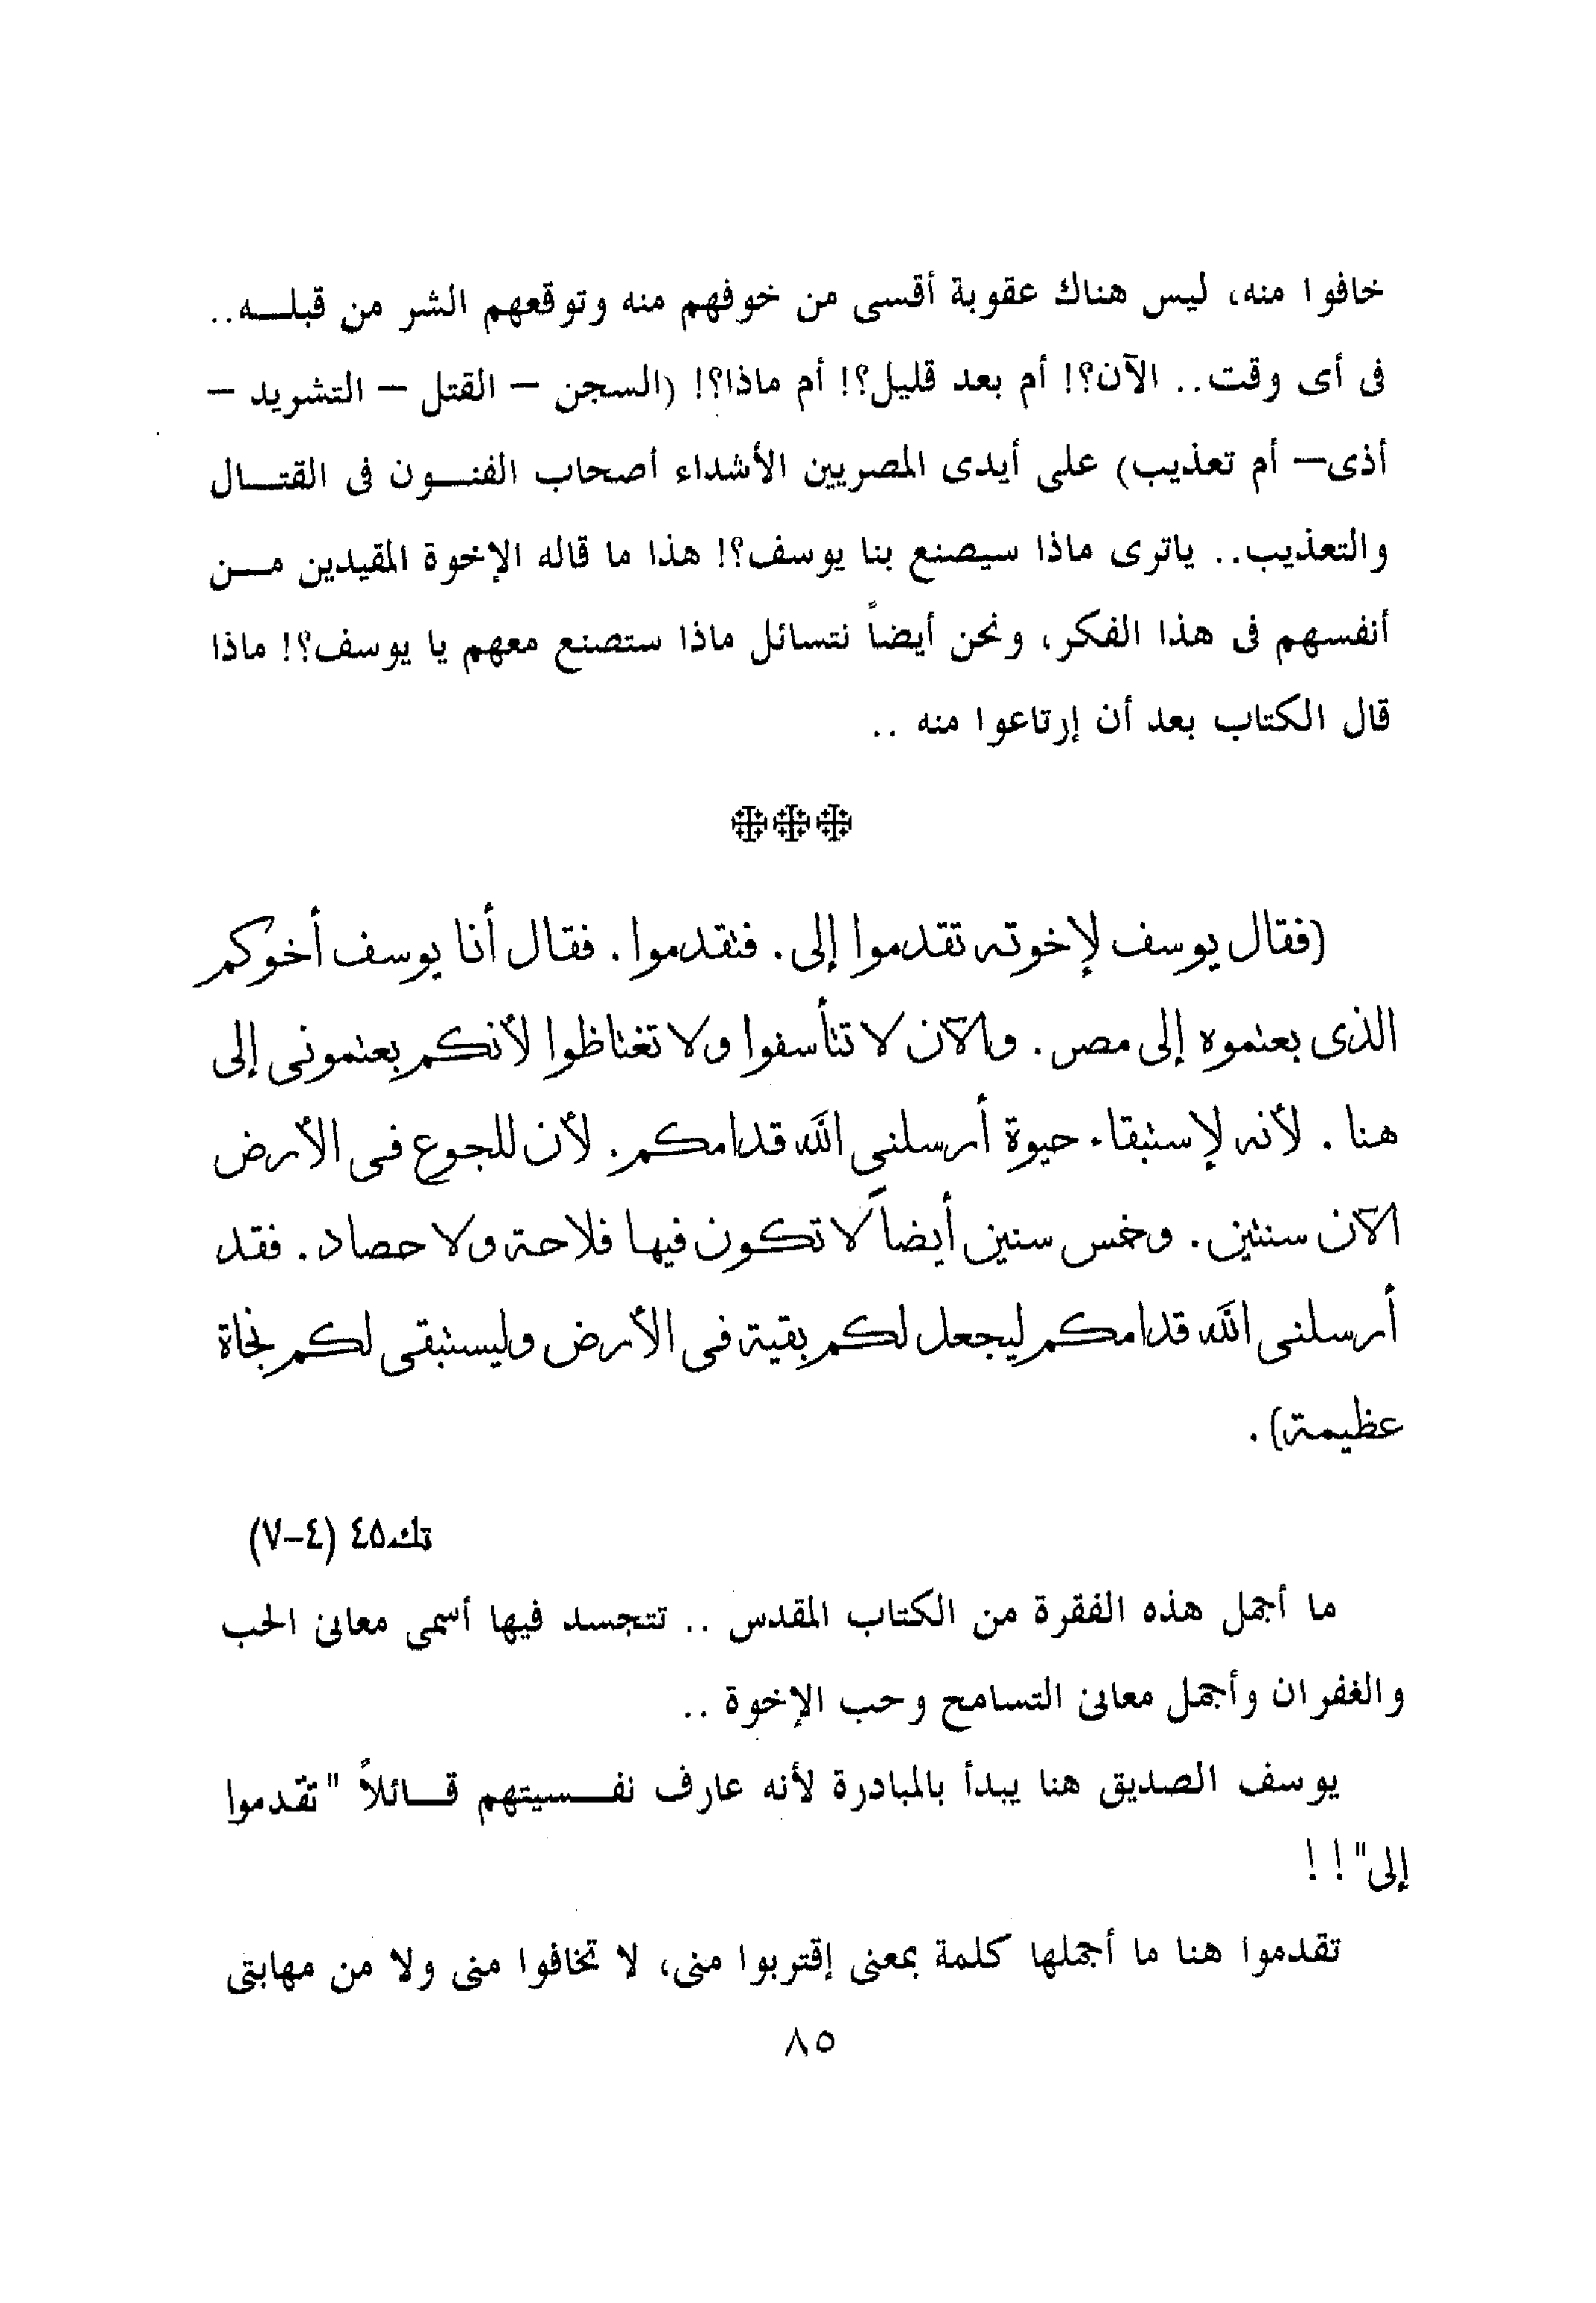 خافوا منه، ليس هناك عقوبة أقسى من خوفهم منه وتوقعهم الشر من قبله..
فى أى وقت.. الآن؟! أم بعد قليل؟! أم ماذا؟! (السجن – القتل – التشريد –
أذى– أم تعذيب) على أيدى المصريين الأشداء أصحاب الفنون فى القتال
والتعذيب.. ياترى ماذا سيصنع بنا يوسف؟! هذا ما قاله الإخوة المقيدين من
أنفسهم فى هذا الفكر، ونحن أيضاً نتسائل ماذا ستصنع معهم يا يوسف؟! ماذا
قال الكتاب بعد أن إرتاعوا منه ..
(فقال يوسف لإخوته تقدموا إلى. فتقدموا. فقال أنا يوسف أخوكم
الذى بعتموه إلى مصر. والآن لا تتأسفوا ولا تغتاظوا لأنكم بعتمونى إلى
هنا. لأنه لإستبقاء حيوة أرسلنى الله قدامكم. لأن للجوع فى الأرض
الآن سنتين. وخمس سنين أيضاً لا تكون فيها فلاحة ولا حصاد. فقد
أرسلنى الله قدامكم ليجعل لكم بقية فى الأرض وليستبقى لكم نجاة
عظيمة).
تك٤٥ (٤–٧)
ما أجمل هذه الفقرة من الكتاب المقدس .. تتجسد فيها أسمى معانى الحب
والغفران وأجمل معانى التسامح وحب الإخوة ..
يوسف الصديق هنا يبدأ بالمبادرة لأنه عارف نفسيتهم قائلاً "تقدموا
إلى"!!
تقدموا هنا ما أجملها كلمة بمعنى إقتربوا منى، لا تخافوا منى ولا من مهابتى
٨٥